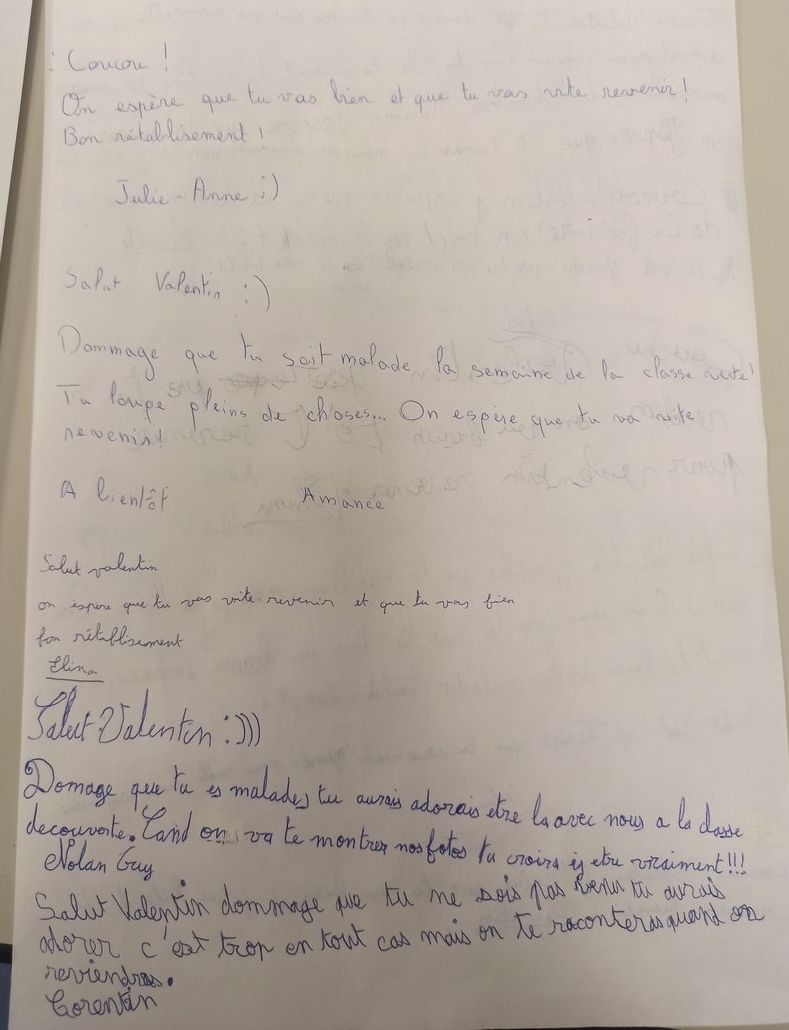 Coucou !
On espère que tu vas bien et que tu vas vite revenir !
Bon rétablisement !
Julie-Anne ;)
Salut Valentin :)
Dommage que tu soit malade la semaine de la classe verte !
Tu loupe pleins de choses... On espère que tu va vite
revenir !
A bientôt Amance
Salut valentin
on espere que tu vas vite revenir et que tu vas bien
bon rétablisement
Elina
Salut Valentin :)))
Domage que tu es malade, tu aurais adorais etre la avec nous a la classe
decouverte. Cand on va te montrer nos fotos tu croira y etre vraiment !!!
Nolan Guy
Salut Valentin dommage que tu ne sois pas venu tu aurais
adorer c'est trop en tout cas mais on te racontera quand on
reviendras.
Corentin